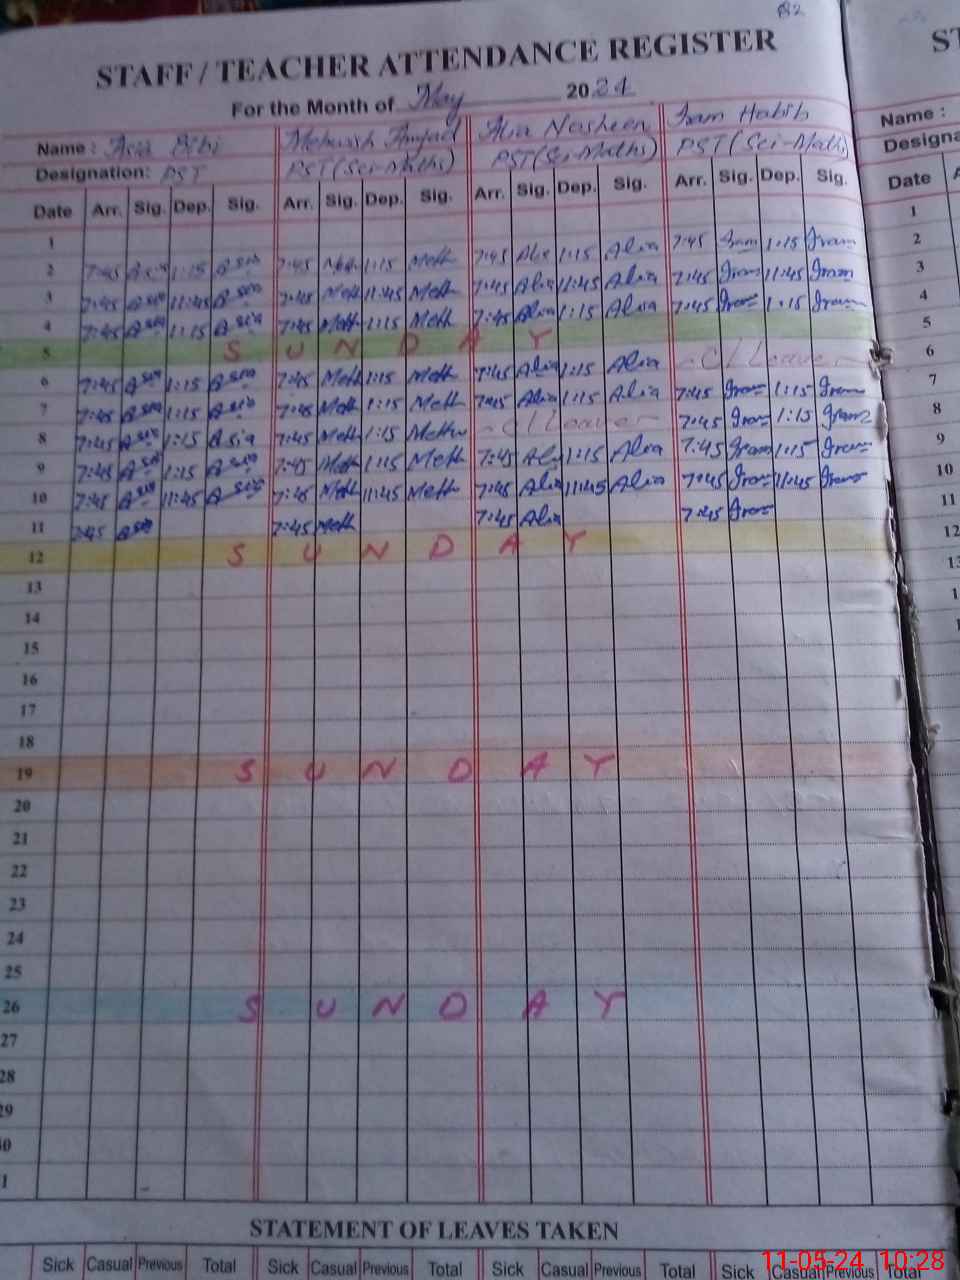 82
STAFF / TEACHER ATTENDANCE REGISTER ST
For the Month of May 2024
Name : Asia Bibi Mehwish Amjad Alia Nosheen Iram Habib Name :
Designation: PST PST (Sci-Maths) PST (Sci-Maths) PST (Sci-Math) Designa
Date Arr. Sig. Dep. Sig. Arr. Sig. Dep. Sig. Arr. Sig. Dep. Sig. Arr. Sig. Dep. Sig. Date A
1 1
2 7:45 Asia 1:15 Asia 7:45 Meh 1:15 Meh 7:45 Alia 1:15 Alia 7:45 Iram 1:15 Iram 2
3 7:45 Asia 11:45 Asia 7:45 Meh 11:45 Meh 7:45 Alia 11:45 Alia 7:45 Iram 11:45 Iram 3
4 7:45 Asia 1:15 Asia 7:45 Meh 1:15 Meh 7:45 Alia 1:15 Alia 7:45 Iram 1:15 Iram 4
5 S U N D A Y 5
6 7:45 Asia 1:15 Asia 7:45 Meh 1:15 Meh 7:45 Alia 1:15 Alia - C/ Leave - 6
7 7:45 Asia 1:15 Asia 7:45 Meh 1:15 Meh 7:45 Alia 1:15 Alia 7:45 Iram 1:15 Iram 7
8 7:45 Asia 1:15 Asia 7:45 Meh 1:15 Meh - C/ Leave - 7:45 Iram 1:15 Iram 8
9 7:45 Asia 1:15 Asia 7:45 Meh 1:15 Meh 7:45 Alia 1:15 Alia 7:45 Iram 1:15 Iram 9
10 7:45 Asia 11:45 Asia 7:45 Meh 11:45 Meh 7:45 Alia 11:45 Alia 7:45 Iram 11:45 Iram 10
11 7:45 Asia 7:45 Meh 7:45 Alia 7:45 Iram 11
12 S U N D A Y 12
13 13
14
15
16
17
18
19 S U N D A Y
20
21
22
23
24
25
26 S U N D A Y
27
28
29
30
31
STATEMENT OF LEAVES TAKEN
Sick Casual Previous Total Sick Casual Previous Total Sick Casual Previous Total Sick Casual Previous Total
11-05-24 10:28